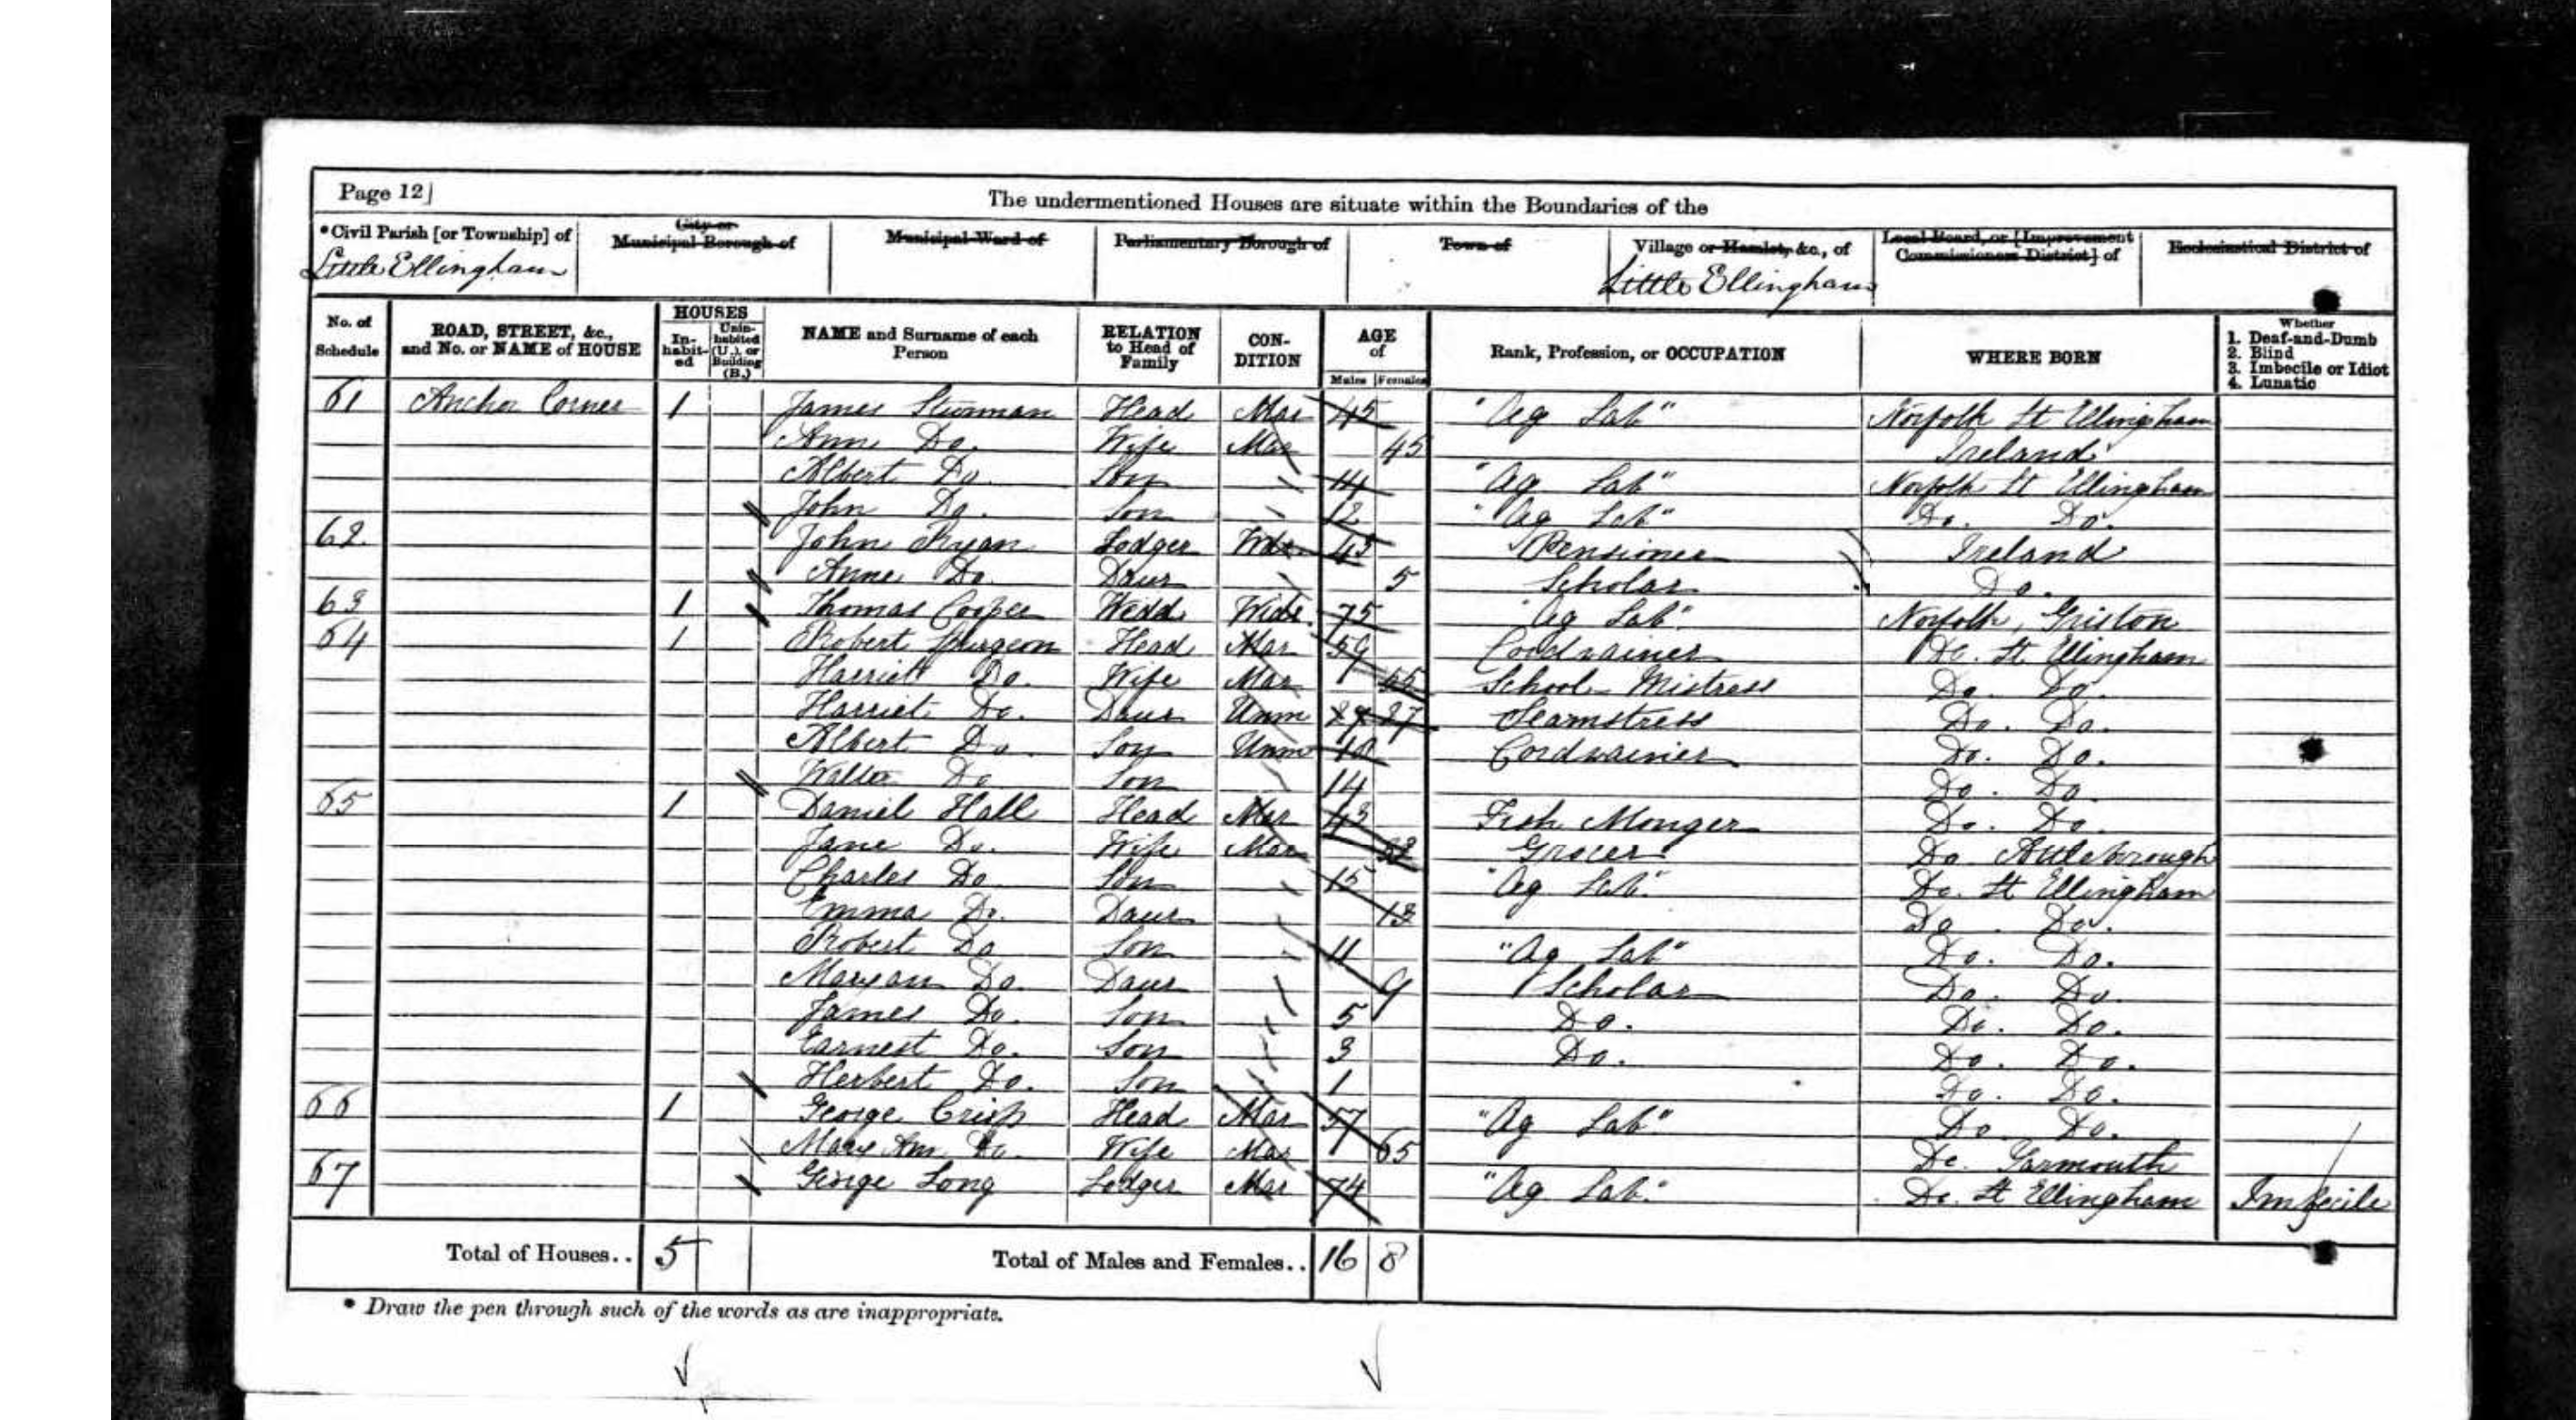 Page 12]
The undermentioned Houses are situate within the Boundaries of the
*Civil Parish [or Township] of Little Ellingham
City or Municipal Borough of
Municipal Ward of
Parliamentary Borough of
Town of
Village or Hamlet, &c., of Little Ellingham
Local Board, or [Improvement Commissioners District] of
Ecclesiastical District of
No. of Schedule
ROAD, STREET, &c., and No. or NAME of HOUSE
HOUSES
In-habit-ed
Unin-habited (U.), or Building (B.)
NAME and Surname of each Person
RELATION to Head of Family
CON-DITION
AGE of
Males Females
Rank, Profession, or OCCUPATION
WHERE BORN
Whether
1. Deaf-and-Dumb
2. Blind
3. Imbecile or Idiot
4. Lunatic
61 Anchor Corner 1 James Sturman Head Mar 45 "Ag Lab" Norfolk Lt Ellingham
Ann Do. Wife Mar 45 Ireland
Albert Do. Son 14 "Ag Lab" Norfolk Lt Ellingham
John Do. Son 12 "Ag Lab" Do. Do.
62 John Ryan Lodger 43 Pensioner Ireland
Anne Do. Daur 5 Scholar Do.
63 1 Thomas Cooper Widr. 75 "Ag Lab" Norfolk, Griston
64 1 Robert Spurgeon Head Mar 59 Cordwainer Do. Lt Ellingham
Harriet Do. Wife Mar 55 School Mistress Do. Do.
Harriet Do. Daur Unm 27 Seamstress Do. Do.
Albert Do. Son Unm 18 Cordwainer Do. Do.
Walter Do Son 14 Do. Do
65 1 Daniel Hall Head Mar 43 Fish Monger Do. Do.
Jane Do. Wife Mar Grocer Do. Attleborough
Charles Do Son 15 "Ag Lab" Do. Lt Ellingham
Emma Do. Daur 13 Do. Do.
Robert Do Son 11 "Ag Lab" Do. Do.
Maryan Do. Daur 9 Scholar Do. Do.
James Do. Son 5 Do. Do. Do.
Earnest Do. Son 3 Do. Do. Do.
Herbert Do. Son 1 Do. Do.
66 1 George Crisp Head Mar 57 "Ag Lab" Do. Do.
Mary Ann Do. Wife Mar 65 Do. Yarmouth
67 George Long Lodger Mar 74 "Ag Lab" Do. Lt Ellingham Imbecile
Total of Houses.. 5
Total of Males and Females.. 16 8
* Draw the pen through such of the words as are inappropriate.